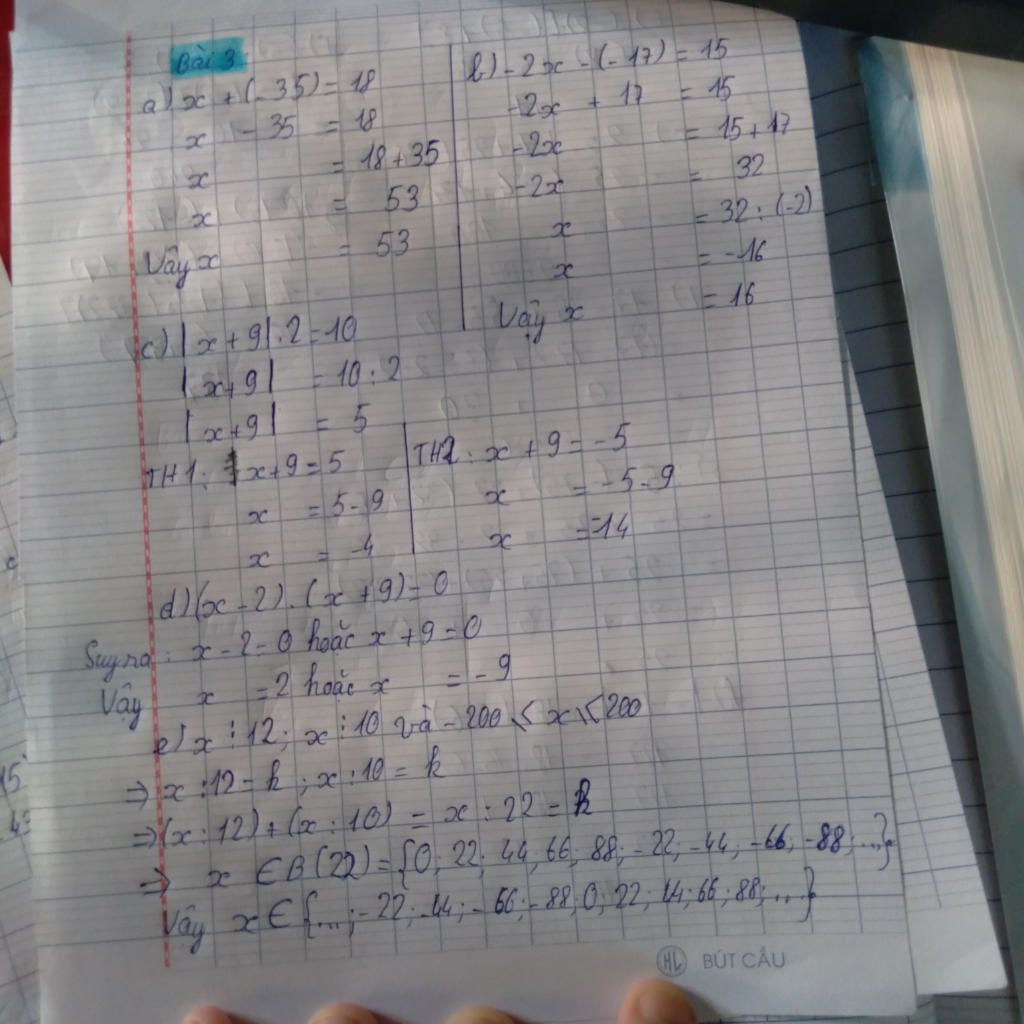 Bài 3
a) x + (- 35) = 18
x - 35 = 18
x = 18 + 35
x = 53
Vậy x = 53
b) - 2x - (- 17) = 15
-2x + 17 = 15
-2x = 15 + 17
-2x = 32
x = 32 : (-2)
x = -16
Vậy x = 16
c) |x + 9| . 2 = 10
|x+9| = 10 : 2
|x+9| = 5
TH1: x+9 = 5
x = 5 - 9
x = -4
TH2: x + 9 = -5
x = -5 - 9
x = -14
d) (x - 2) . (x + 9) = 0
Suy ra: x - 2 = 0 hoặc x + 9 = 0
Vậy x = 2 hoặc x = - 9
e) x ⋮ 12; x ⋮ 10 và - 200 ≤ x ≤ 200
=> x : 12 = k ; x : 10 = k
=> (x : 12) + (x : 10) = x : 22 = k
=> x ∈ B(22) = {0; 22; 44; 66; 88; -22; -44; -66; -88; ...}
Vậy x ∈ {...; -22; -44; -66; -88; 0; 22; 44; 66; 88; ...}
HL BÚT CÂU